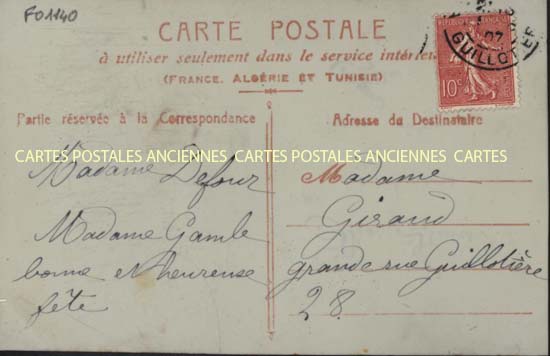 F01140
CARTE POSTALE
à utiliser seulement dans le service intérieur
(FRANCE, ALGÉRIE ET TUNISIE)
10c
07
GUILLOTIÈRE
Partie réservée à la Correspondance
Adresse du Destinataire
CARTES POSTALES ANCIENNES CARTES POSTALES ANCIENNES CARTES
Madame Defour
Madame Gamle
bonne et heureuse
fête
Madame
Giraud
grande rue Guillotière
28